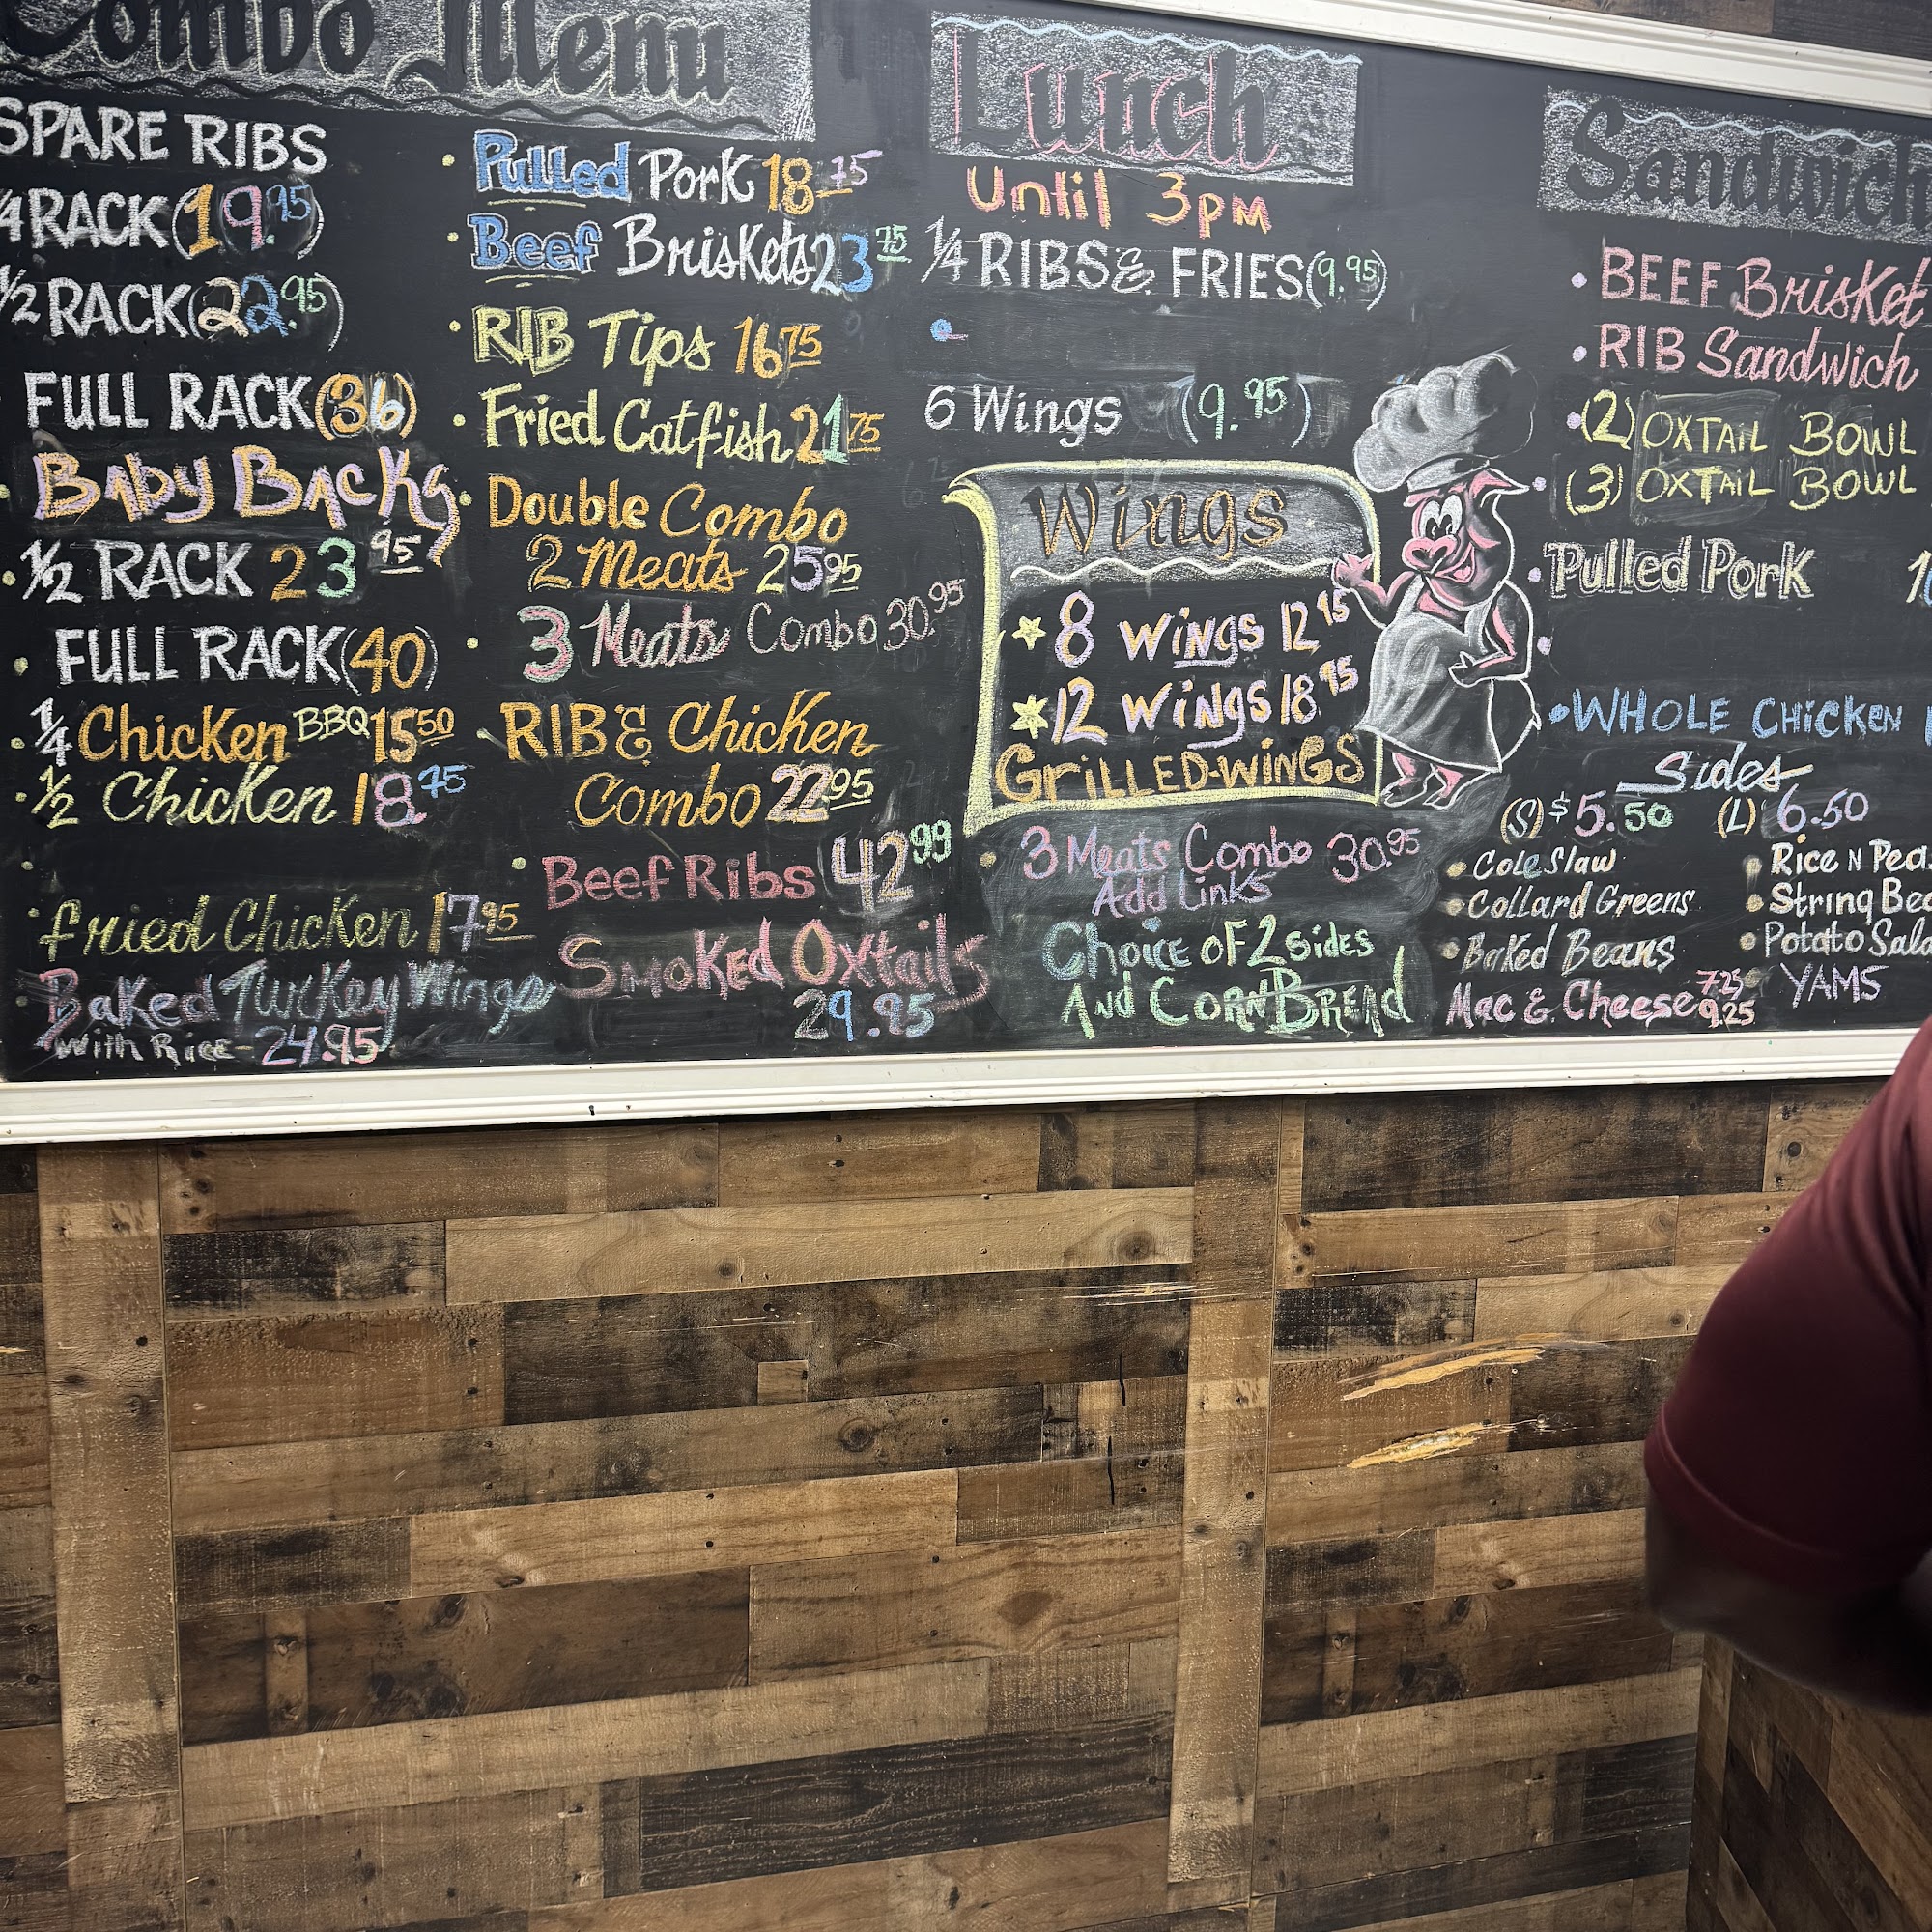 Combo Menu
SPARE RIBS
1/4 RACK (19.95)
1/2 RACK (22.95)
FULL RACK (36)
BABY BACKS
1/2 RACK 23 95
FULL RACK (40)
1/4 Chicken BBQ 15 50
1/2 Chicken 18 75
fried Chicken 17 95
Baked Turkey Wings
With Rice - 24.95
Pulled Pork 18.75
Beef Briskets 23 75
RIB Tips 16 75
Fried Catfish 21 75
Double Combo
2 Meats 25 95
3 Meats Combo 30.95
RIB & Chicken
Combo 22 95
Beef Ribs 42 99
Smoked Oxtails
29.95
Lunch
Until 3PM
1/4 RIBS & FRIES (9.95)
6 Wings (9.95)
Wings
8 wings 12 95
12 wings 18 95
GRILLED-WINGS
3 Meats Combo 30.95
Add Links
Choice of 2 sides
And CornBread
Sandwich
BEEF Brisket
RIB Sandwich
(2) OXTAIL BOWL
(3) OXTAIL BOWL
Pulled Pork
WHOLE CHICKEN
Sides
(S) $5.50 (L) 6.50
Cole Slaw
Collard Greens
Baked Beans
Mac & Cheese 7.25
9.25
Rice N
String
Potato
YAMS